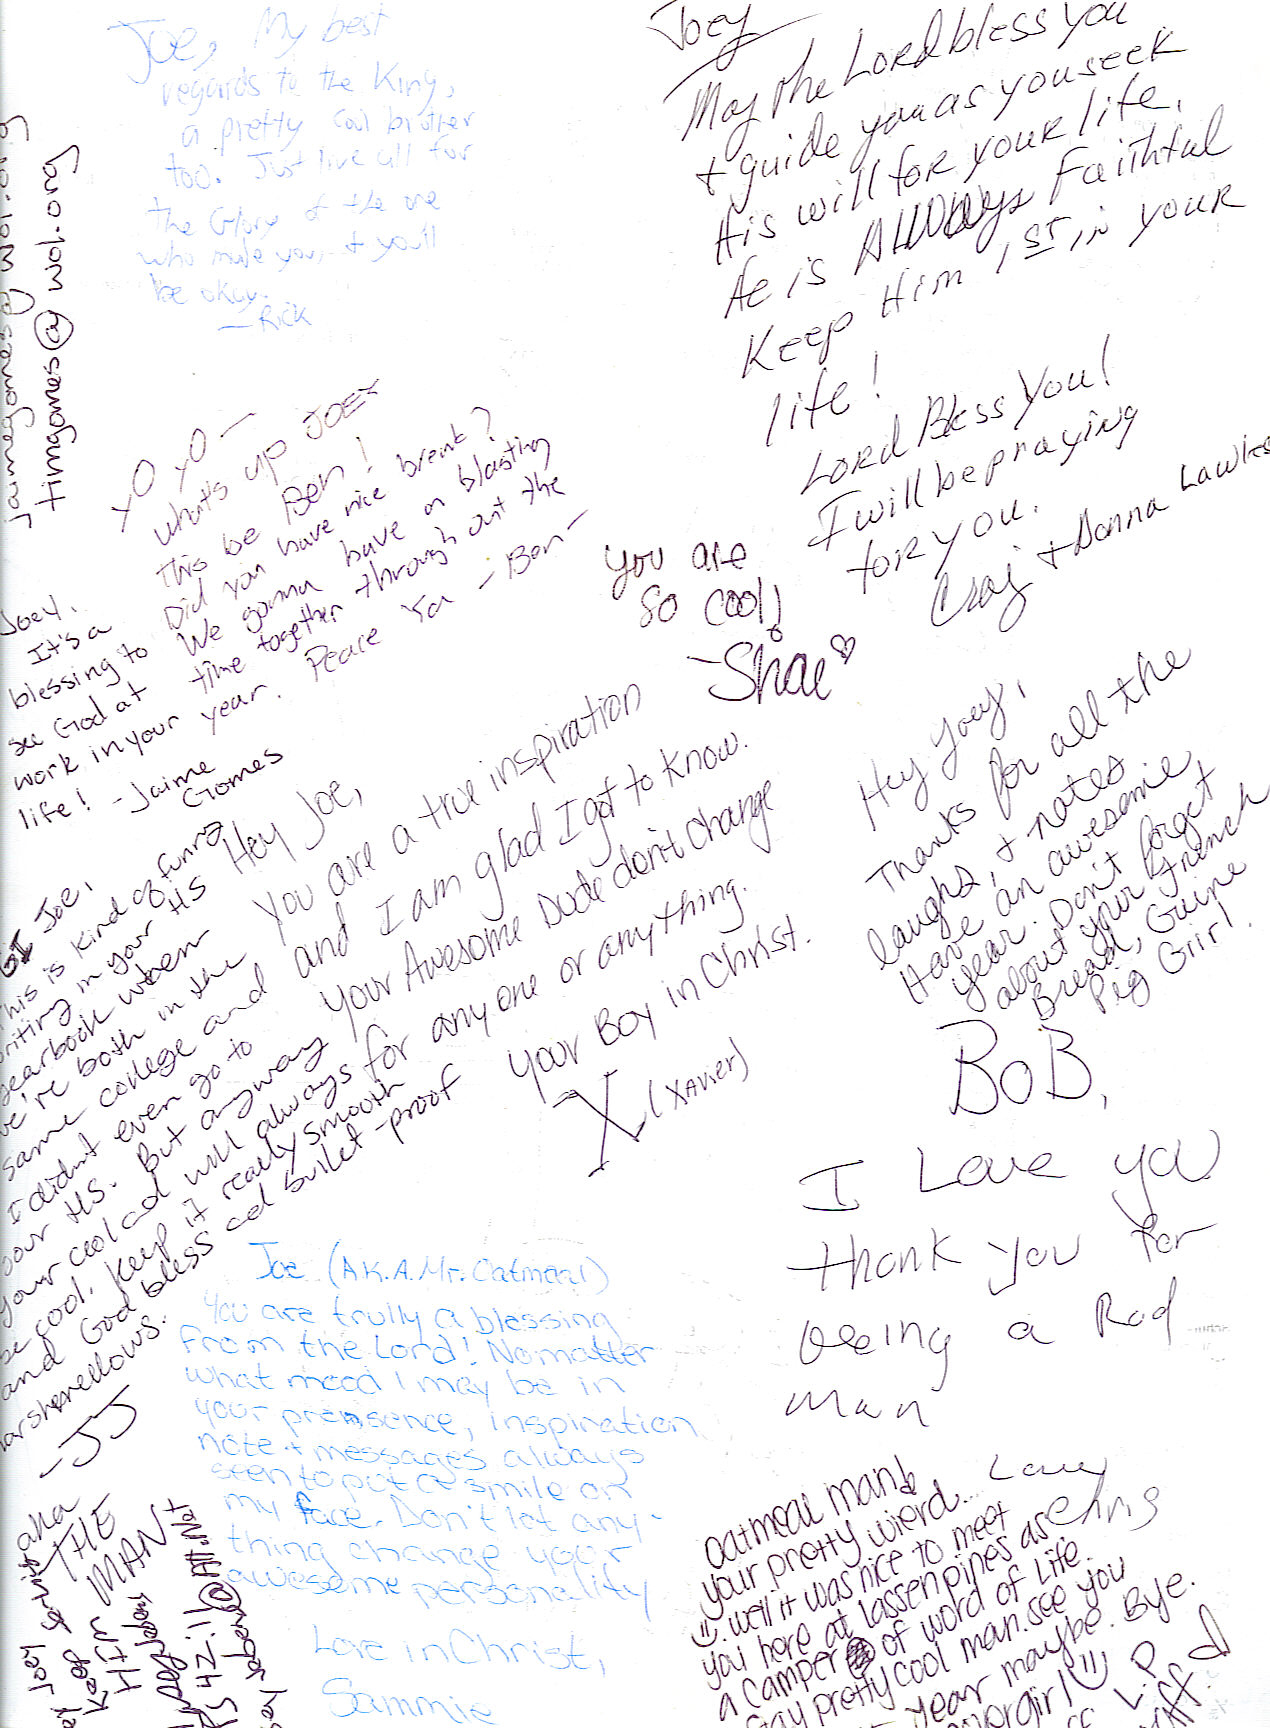 Joe, My best
regards to the King,
a pretty cool brother
too. Just live all for
the Glory of the one
who made you, & you'll
be okay.
— Rick
Joey
May the Lord bless you
& guide you as you seek
His will for your life.
He is Always Faithful
Keep Him 1st in your
life!
Lord Bless You!
I will be praying
for you.
Craig & Donna Lawless
jaimegomes@wol.org
timgomes@wol.org
yo yo —
what's up JOEY
This be Ben!
Did you have nice break?
We gonna have a blasting
time together through out the
year. Peace Ya - Ben -
you are
so cool,
~Shae
Joey,
It's a
blessing to
see God at
work in your
life! - Jaime
Gomes
Hey Joe,
You are a true inspiration
and I am glad I got to know.
your Awesome Dude don't change
for any one or anything.
your Boy in Christ.
X (XAvier)
Hey Joey,
Thanks for all the
laughs, & notes
Have an awesome
year. Don't forget
about your French
Bread, Guine
Pig Girl.
GI Joe,
This is kind of funny
writing in your HS
yearbook when
we're both in the
same college and
I didn't even go to
your HS. But anyway
your cool and will always
be cool. Keep it really smooth
and God bless and bullet-proof
marshmellows.
-JJ
aka
THE
MAN
BOB,
I Love you
thank you for
beeing a Rad
man
Love
Chris
Joe (A.K.A. Mr. Oatmeal)
You are trully a blessing
From the Lord! No matter
what mood I may be in
your prensence, inspiration
note & messages always
seen to put a smile on
my face. Don't let any-
thing change your
awesome personality
Love in Christ,
Sammie
Oatmeal man!
your pretty wierd...
well it was nice to meet
you here at lassenpines as
a camper of word of Life
stay pretty cool man. see you
year maybe. Bye.
L.P.
Joey
Keep
Him